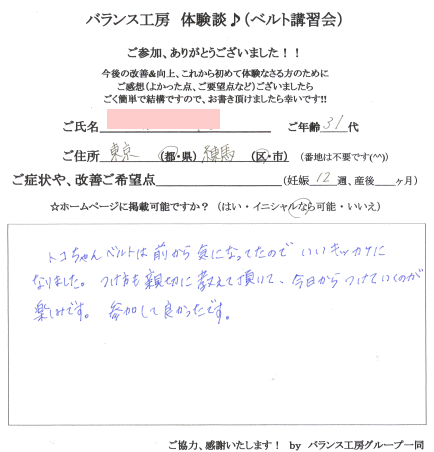 バランス工房　体験談♪（ベルト講習会）
ご参加、ありがとうございました！！
今後の改善&向上、これから初めて体験なさる方のために
ご感想（よかった点、ご要望点など）ございましたら
ごく簡単で結構ですので、お書き頂けましたら幸いです!!
ご氏名　ご年齢 31 代
ご住所 東京 （都・県） 練馬 （区・市）（番地は不要です(^^)）
ご症状や、改善ご希望点　（妊娠 12 週、産後　ヶ月）
☆ホームページに掲載可能ですか？（はい・イニシャルなら可能・いいえ）
トコちゃんベルトは前から気になってたのでいいキッカケに
なりました。つけ方も親切に教えて頂いて、今日からつけていくのが
楽しみです。参加して良かったです。
ご協力、感謝いたします！ by バランス工房グループ一同